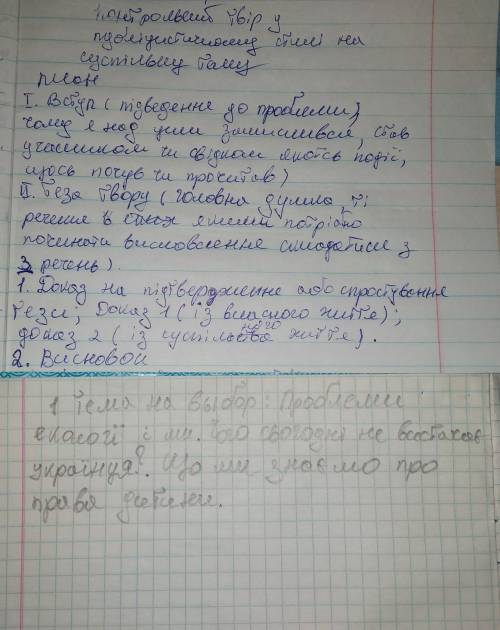 Контрольний твір у
публіцистичному стилі на
суспільну тему
План
I. Вступ (підведення до проблеми,
чому я над цим замислився, став
учасником чи свідком якоїсь події,
щось почув чи прочитав)
II. Теза твору (головна думка, ті
речення в яких якими потрібно
починати висловлення складатися з
3 речень).
1. Доказ на підтвердження або спростування
тези; Доказ 1 (із власного життя);
доказ 2 (із суспільного життя).
2. Висновок
1 тема на выбор: Проблеми
екології і ми. Чого сьогодні не вистачає
українцу?. Що ми знаємо про
права дитини.